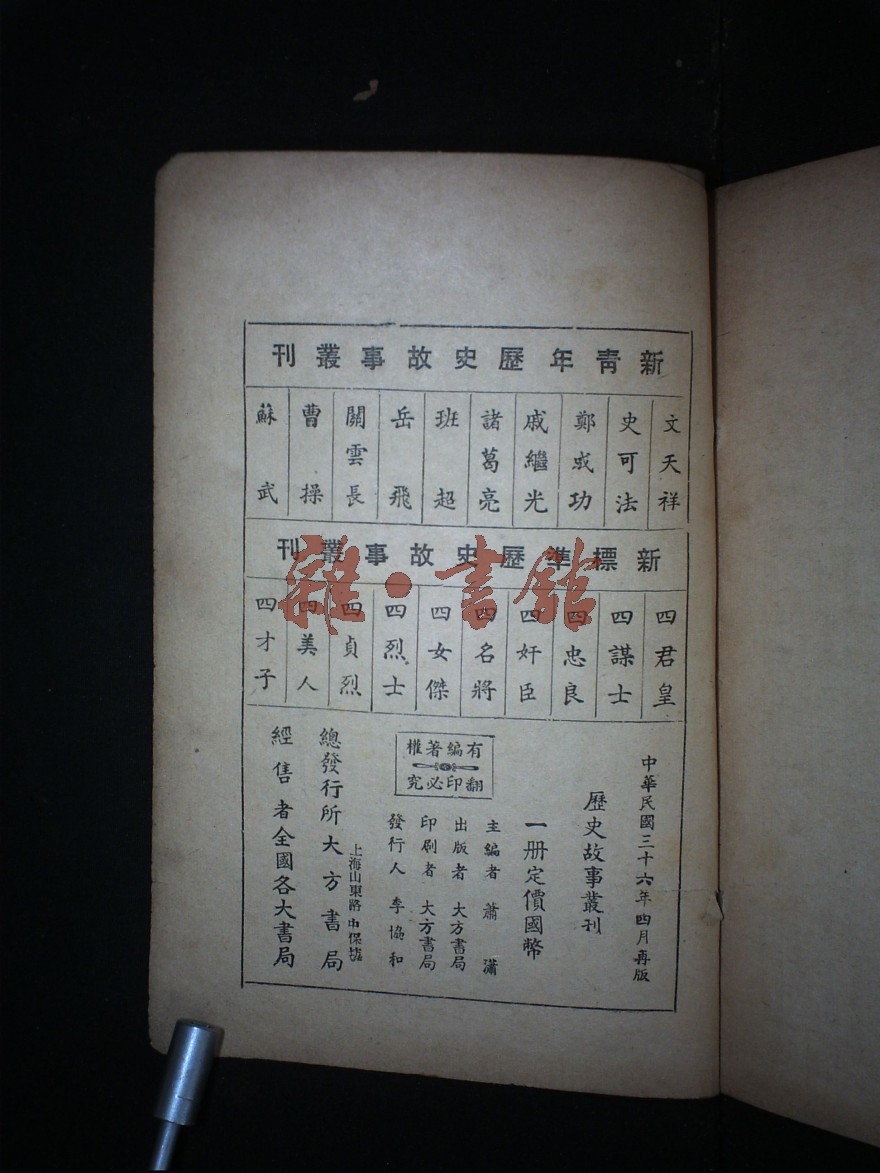 新青年歷史故事叢刊
文天祥
史可法
鄭成功
戚繼光
諸葛亮
班超
岳飛
關雲長
曹操
蘇武
新標準歷史故事叢刊
四君皇
四謀士
四忠良
四奸臣
四名將
四女傑
四烈士
四貞烈
四美人
四才子
中華民國三十六年四月再版
歷史故事叢刊
一册定價國幣
有編著權
翻印必究
主編者 蕭瀟
出版者 大方書局
印刷者 大方書局
發行人 李協和
上海山東路中保坊
總發行所大方書局
經售者全國各大書局
雜·書館